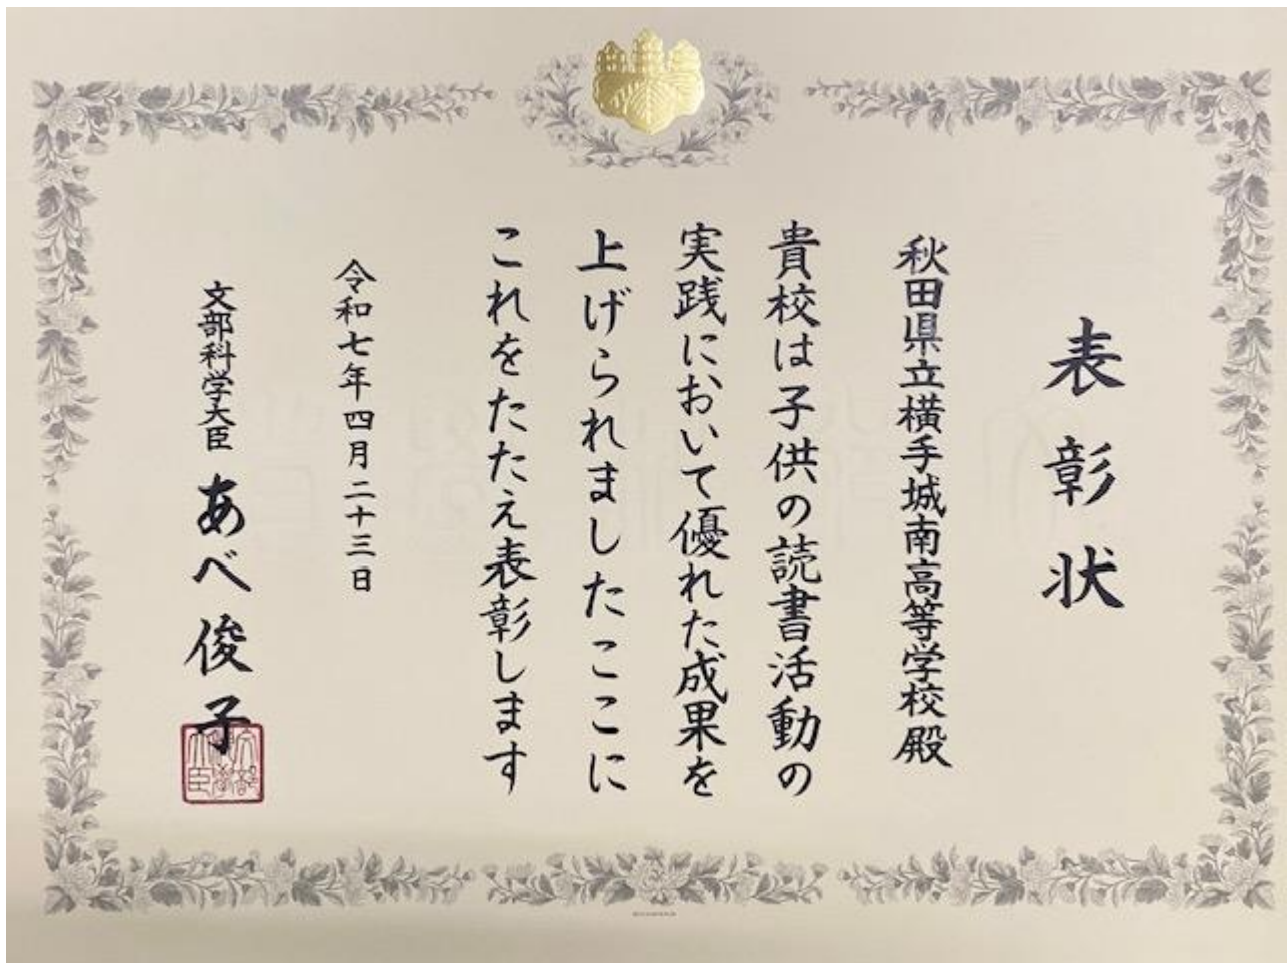 表彰状
秋田県立横手城南高等学校殿
貴校は子供の読書活動の
実践において優れた成果を
上げられましたここに
これをたたえ表彰します
令和七年四月二十三日
文部科学大臣 あべ俊子